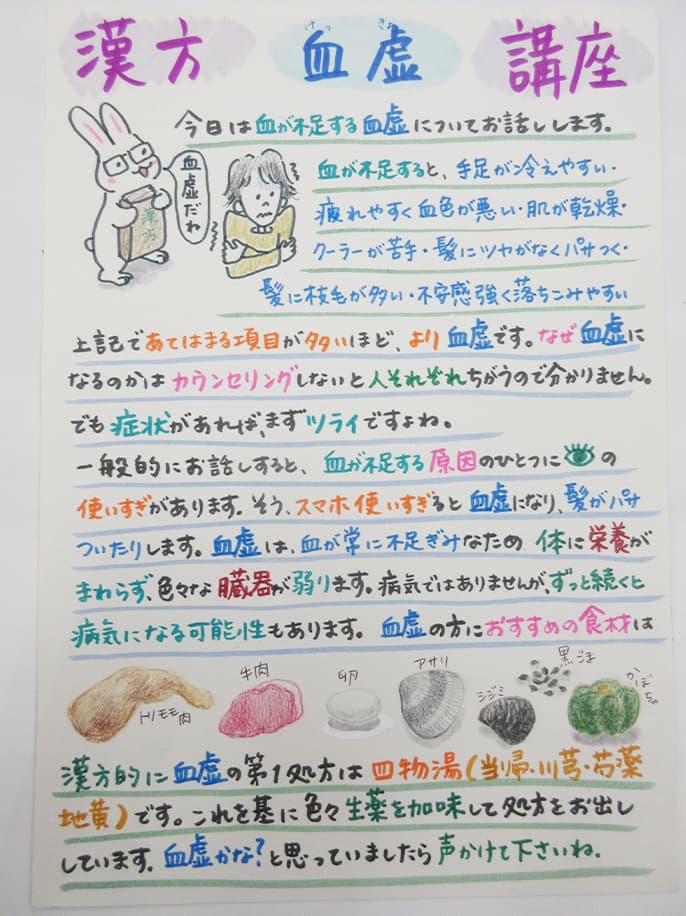 漢方 血虚 講座
けっ きょ
今日は血が不足する血虚についてお話しします。
血虚だね
漢方
血が不足すると、手足が冷えやすい・
疲れやすく血色が悪い・肌が乾燥・
クーラーが苦手・髪にツヤがなくパサつく・
髪に枝毛が多い・不安感強く落ちこみやすい
上記であてはまる項目が多いほど、より血虚です。なぜ血虚に
なるのかはカウンセリングしないと人それぞれちがうので分かりません。
でも症状があれば、まずツライですよね。
一般的にお話しすると、血が不足する原因のひとつに の
使いすぎがあります。そう、スマホ使いすぎると血虚になり、髪がパサ
ついたりします。血虚は、血が常に不足ぎみなため 体に栄養が
まわらず、色々な臓器が弱ります。病気ではありませんが、ずっと続くと
病気になる可能性もあります。血虚の方におすすめの食材は
トリモモ肉
牛肉
卵
アサリ
シジミ
黒ごま
かぼちゃ
漢方的に血虚の第1処方は四物湯(当帰・川芎・芍薬
地黄)です。これを基に色々生薬を加味して処方をお出し
しています。血虚かな?と思っていましたら声かけて下さいね。